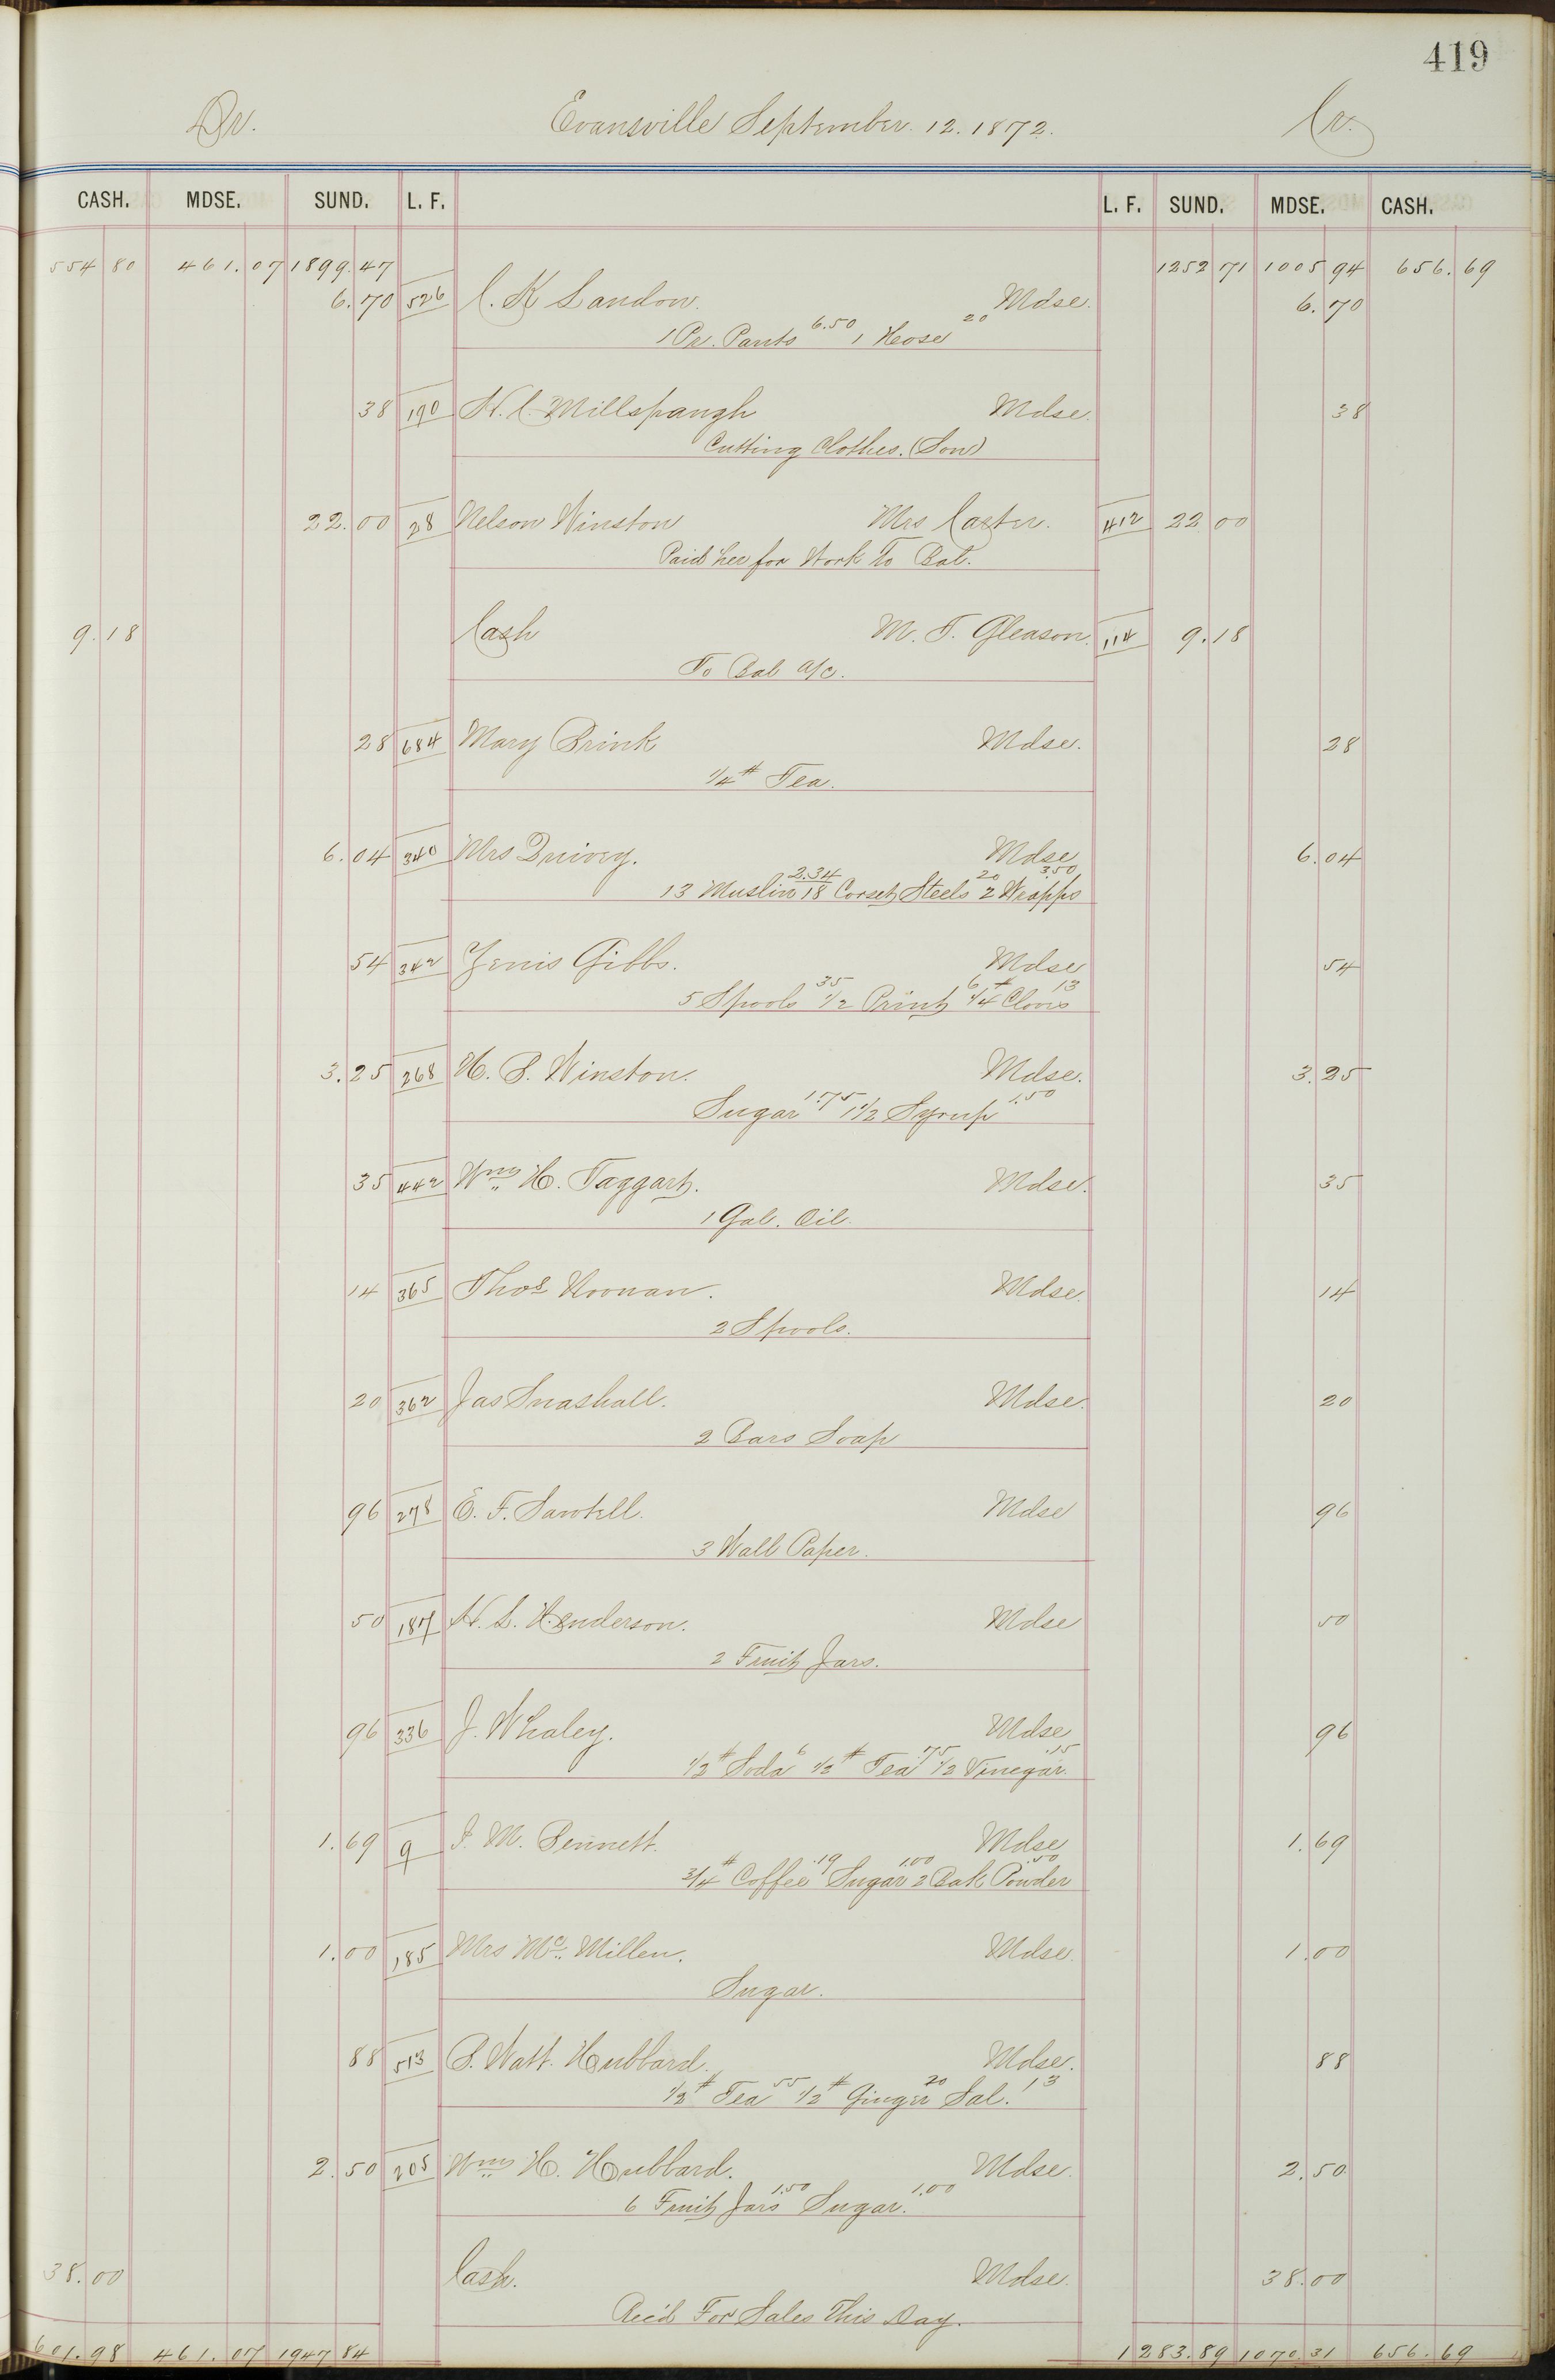 419
Dr. Evansville September. 12. 1872. Cr.
CASH. MDSE. SUND. L. F. L. F. SUND. MDSE. CASH.
554 80 461.07 1899.47 1252 71 1005 94 656.69
6.70 526 C. K Landon. Mdse. 6.70
1 Pr. Pants 6.50 1 Hose 20
38 190 N. C. Millspaugh Mdse. 38
Cutting Clothes. (Son)
22.00 28 Nelson Winston Mrs Carter. 412 22 00
Paid her for Work To Bal.
9.18 Cash M. T. Gleason. 114 9.18
To Bal a/c.
28 684 Mary Brink Mdse. 28
1/4 # Tea.
6.04 340 Mrs Mdse 6.04
13 Muslin 18 2.34 Corset Steels 20 2 Wrapps 3.50
54 342 Gibbs. Mdse 54
5 Spools 35 1/2 Print 6 1/4 # Cloves 13
3.25 268 H. B. Winston. Mdse. 3.25
Sugar 1.75 1 1/2 Syrup 1.50
35 442 Wm H. Taggart. Mdse. 35
1 Gal. Oil.
14 365 Thos Noonan. Mdse. 14
2 Spools.
20 362 Jas Snashall. Mdse. 20
2 Bars Soap
96 278 E. F. Sawtell. Mdse 96
3 Wall Paper.
50 187 N. L. Henderson. Mdse 50
2 Fruit Jars.
96 336 J. Whaley. Mdse 96
1/2 # Soda 6 1/2 # Tea .75 1/2 Vinegar .15
1.69 9 I. M. Bennett. Mdse 1.69
3/4 # Coffee .19 Sugar 1.00 2 Bak Powder .50
1.00 185 Mrs Mc. Millen. Mdse. 1.00
Sugar.
88 513 B. Watt. Hubbard. Mdse. 88
1/2 # Tea 55 1/2 # Ginger 20 Sal. 13
2.50 205 Wm H. Hubbard. Mdse. 2.50
6 Fruit Jars 1.50 Sugar. 1.00
38.00 Cash. Mdse. 38.00
Rec'd For Sales This Day.
601.98 461.07 1947 84 1283.89 1070.31 656.69